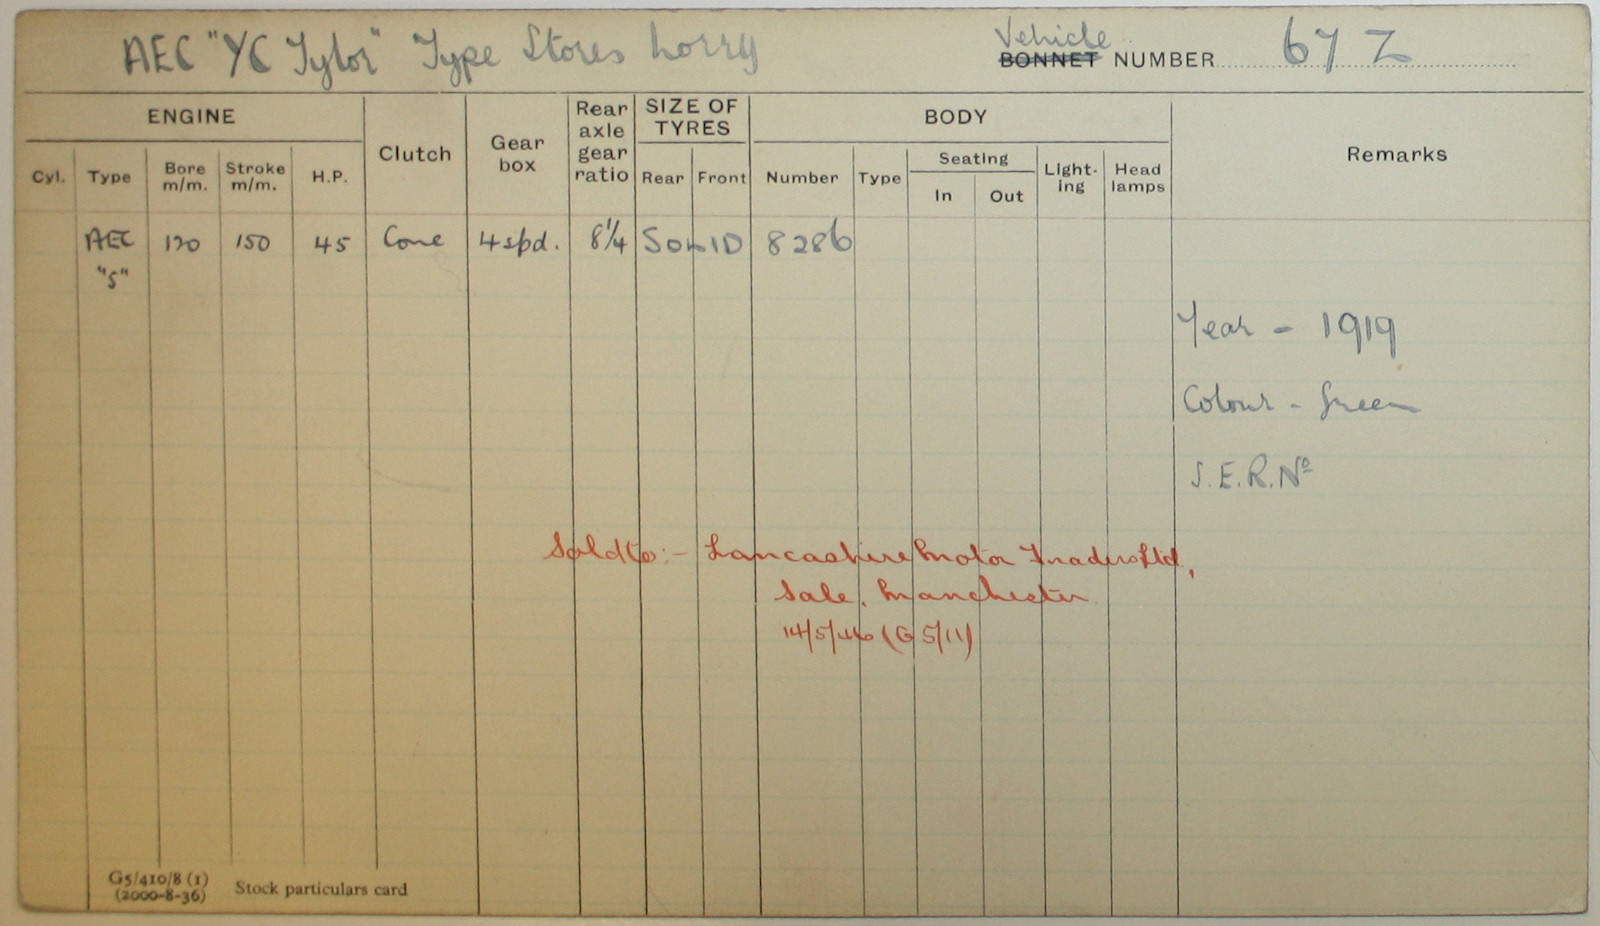 AEC "YC Tylor" Type Stores Lorry
Vehicle
BONNET NUMBER 67 Z
ENGINE Clutch Gear box Rear axle gear ratio SIZE OF TYRES BODY Remarks
Cyl. Type Bore m/m. Stroke m/m. H.P. Rear Front Number Type Seating In Out Light-ing Head lamps
AEC 120 150 45 Cone 4 spd. 8¼ SOLID 8286
"S"
Year - 1919
Colour - Green
S.E.R. Nº
Sold to:- Lancashire Motor Traders Ltd,
Sale, Manchester
14/5/46 (G 5/11)
G5/410/8 (1)
(2000-8-36) Stock particulars card